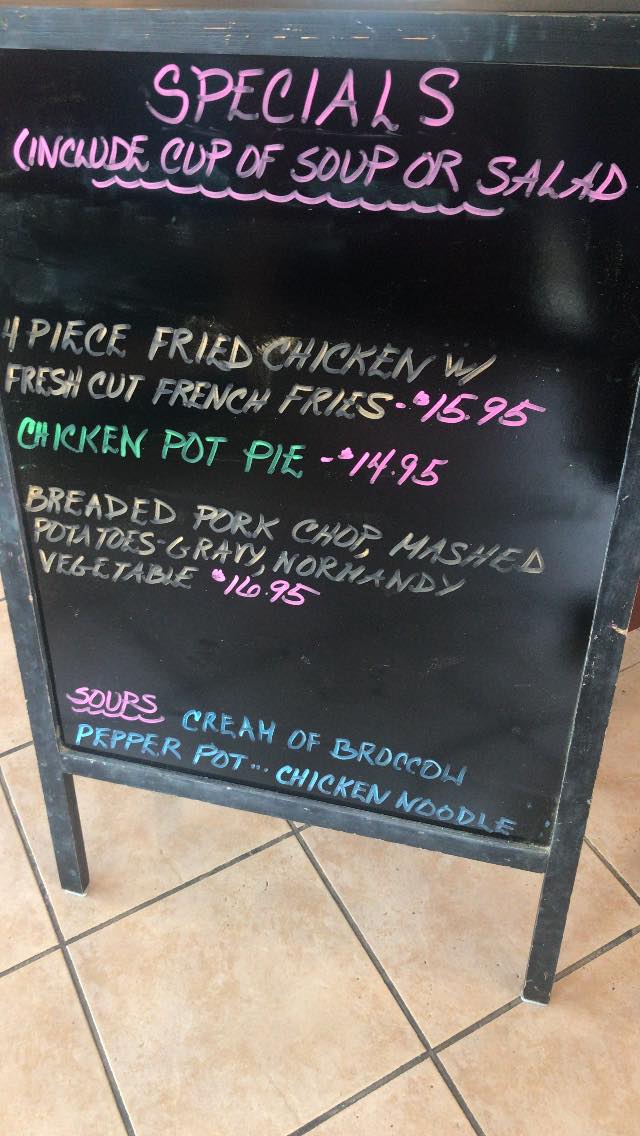 SPECIALS
(INCLUDE CUP OF SOUP OR SALAD
4 PIECE FRIED CHICKEN W/
FRESH CUT FRENCH FRIES - $15.95
CHICKEN POT PIE - $14.95
BREADED PORK CHOP, MASHED
POTATOES-GRAVY, NORMANDY
VEGETABLE $16.95
SOUPS CREAM OF BROCCOLI
PEPPER POT... CHICKEN NOODLE